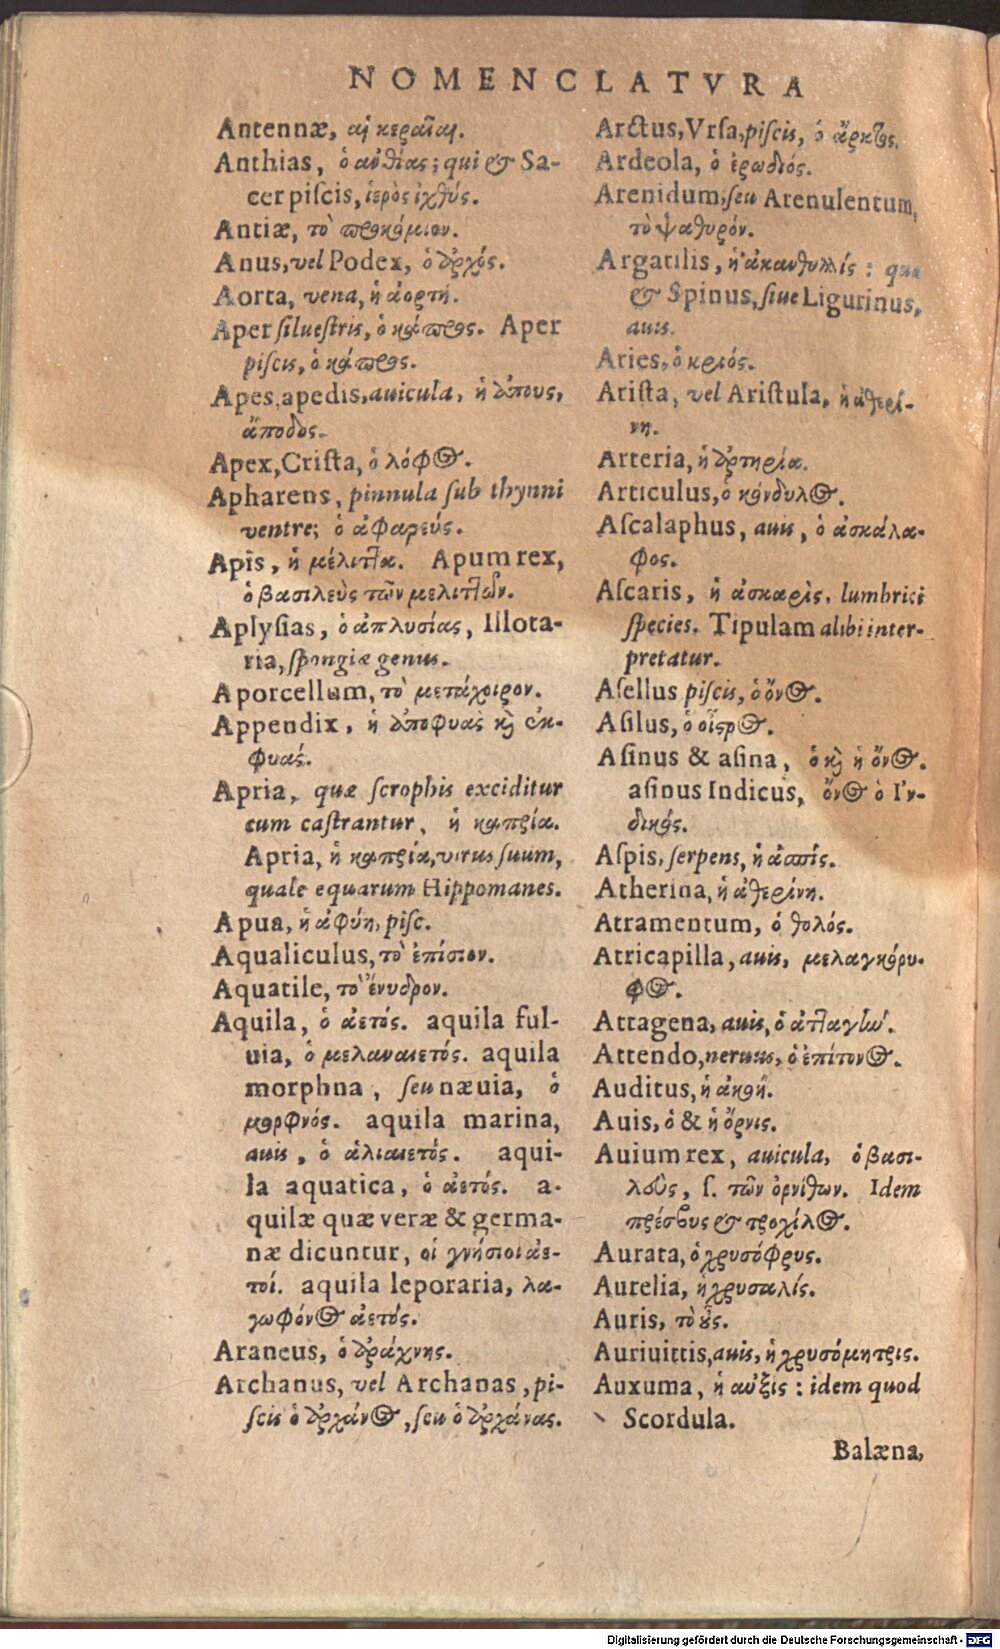 NOMENCLATVRA
Antennæ, αἱ κεραῖαι.
Anthias, ὁ ἀνθίας; qui & Sa-
cer piſcis, ἱερὸς ἰχθύς.
Antiæ, τὸ προκόμιον.
Anus, vel Podex, ὁ ἀρχός.
Aorta, vena, ἡ ἀορτή.
Aper ſilueſtris, ὁ κάπρος. Aper
piſcis, ὁ κάπρος.
Apes, apedis, auicula, ἡ ἄπους,
ἄποδος.
Apex, Criſta, ὁ λόφος.
Apharens, pinnula ſub thynni
ventre; ὁ ἀφαρεύς.
Apis, ἡ μέλιττα. Apum rex,
ὁ βασιλεὺς τῶν μελιττῶν.
Aplyſias, ὁ ἀπλυσίας, Illota-
ria, ſpongiæ genus.
Aporcellum, τὸ μετάχοιρον.
Appendix, ἡ ἀποφυὰς καὶ ἐκ-
φυάς.
Apria, quæ ſcrophis exciditur
cum caſtrantur, ἡ καπρία.
Apria, ἡ καπρία, virus ſuum,
quale equarum Hippomanes.
Apua, ἡ ἀφύη, piſc.
Aqualiculus, τὸ ἐπίσιον.
Aquatile, τὸ ἔνυδρον.
Aquila, ὁ ἀετός. aquila ful-
uia, ὁ μελαναιετός. aquila
morphna, ſeu næuia, ὁ
μορφνός. aquila marina,
auis, ὁ ἁλιαιετός. aqui-
la aquatica, ὁ ἀετός. a-
quilæ quæ veræ & germa-
næ dicuntur, οἱ γνήσιοι ἀε-
τοί. aquila leporaria, λα-
γωφόνος ἀετός.
Araneus, ὁ ἀράχνης.
Archanus, vel Archanas, pi-
ſcis ὁ ἀρχάνος, ſeu ὁ ἀρχάνας.
Arctus, Vrſa, piſcis, ὁ ἄρκτος.
Ardeola, ὁ ἐρωδιός.
Arenidum, ſeu Arenulentum,
τὸ ψαθυρόν.
Argatilis, ἡ ἀκανθυλλίς: quæ
& Spinus, ſiue Ligurinus,
auis.
Aries, ὁ κριός.
Ariſta, vel Ariſtula, ἡ ἀθερί-
νη.
Arteria, ἡ ἀρτηρία.
Articulus, ὁ κόνδυλος.
Aſcalaphus, auis, ὁ ἀσκάλα-
φος.
Aſcaris, ἡ ἀσκαρὶς, lumbrici
ſpecies. Tipulam alibi inter-
pretatur.
Aſellus piſcis, ὁ ὄνος.
Aſilus, ὁ οἶστρος.
Aſinus & aſina, ὁ καὶ ἡ ὄνος.
aſinus Indicus, ὄνος ὁ Ἰν-
δικός.
Aſpis, ſerpens, ἡ ἀσπίς.
Atherina, ἡ ἀθερίνη.
Atramentum, ὁ θολός.
Atricapilla, auis, μελαγκόρυ-
φος.
Attagena, auis, ὁ ἀτταγὴν.
Attendo, neruus, ὁ ἐπίτονος.
Auditus, ἡ ἀκοή.
Auis, ὁ & ἡ ὄρνις.
Auium rex, auicula, ὁ βασι-
λεὺς, ſ. τῶν ὀρνίθων. Idem
πρέσβυς & τροχίλος.
Aurata, ὁ χρυσόφρυς.
Aurelia, ἡ χρυσαλίς.
Auris, τὸ οὖς.
Auriuittis, auis, ἡ χρυσόμητρις.
Auxuma, ἡ αὖξις: idem quod
Scordula.
Balæna,
Digitalisierung gefördert durch die Deutsche Forschungsgemeinschaft - DFG